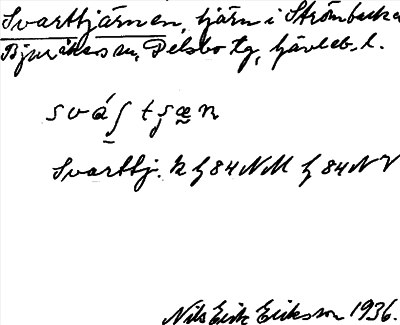 Svarttjärnen, tjärn i Strömbacka
Bjuråkers sn, Delsbo tg, Gävleb. l.
sváʃ tʂæn
Svarttj. k h 84 NM h 84 NV
Nils Erik Eriksson 1936.